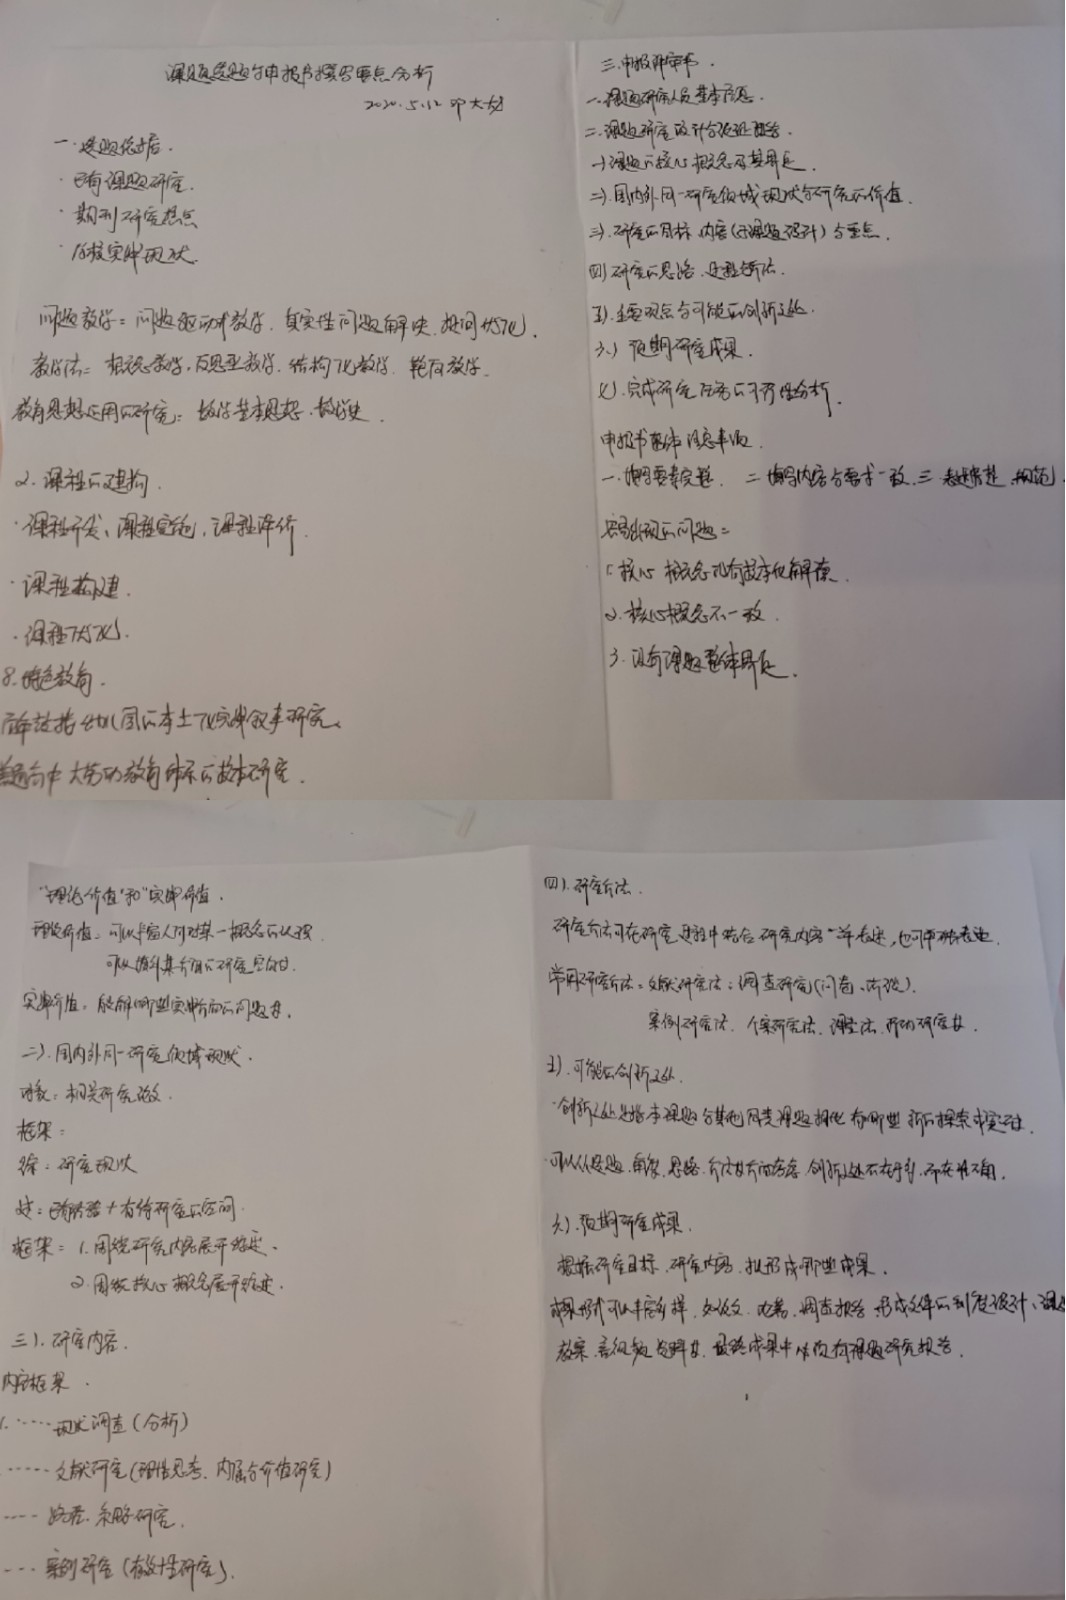 课题选题与申报书撰写要点分析
2020.5.12
一.选题依据.
·已有课题研究.
·期刊研究热点
·学校实践现状.
问题教学：问题驱动式教学.真实性问题解决.提问优化.
教学法：概念教学.反思型教学.结构化教学.
教育思想应用的研究：数学基本思想.数学史.
2.课程的建构.
·课程开发、课程实施,课程评价.
·课程构建.
·课程优化.
8.特色教育.
幼儿园的本土化实践叙事研究.
普通高中大劳动教育体系的校本研究.
三.申报评审书.
一.课题研究人员基本信息.
二.课题研究设计与论证报告.
一)课题的核心概念及其界定.
二).国内外同一研究领域现状与研究的价值.
三).研究的目标.内容(子课题设计)与重点.
四)研究的思路.过程与方法.
五).主要观点与可能的创新之处.
六)预期研究成果.
七).完成研究任务的可行性分析.
申报书整体注意事项.
一.填写要素完整. 二填写内容与要求一致.三表述清楚.规范.
容易出现的问题：
1.核心概念没有校本化解读.
2.核心概念不一致.
3.没有课题整体界定.
"理论价值"和"实践价值.
理论价值：可以丰富人们对某一概念的认识
可以填补某方面的研究空白等.
实践价值：能解决哪些实践方面的问题等.
二).国内外同一研究领域现状.
相关研究论文.
框架：
综：研究现状
述：已有经验+有待研究的空间.
框架：1.围绕研究内容展开综述.
2.围绕核心概念展开综述.
三).研究内容.
内容框架.
1.……现状调查(分析)
……文献研究(理性思考.内涵与价值研究)
……路径.策略研究.
……案例研究(有效性研究).
四).研究方法.
研究方法可在研究过程中结合研究内容一并表述,也可单独表述.
常用研究方法：文献研究法；调查研究(问卷、访谈).
案例研究法、个案研究法、调查法、行动研究等.
五).可能的创新之处.
·创新之处是指本课题与其他同类课题相比有哪些新的探索或实践.
·可以从选题.角度.思路.方法等方面考虑.创新之处不在于多,而在准确.
六).预期研究成果.
根据研究目标.研究内容.拟形成哪些成果.
成果形式可以丰富多样,如论文.论著.调查报告.形成文件的制度设计、课件
教案.音视频资料等.最终成果中必须有课题研究报告.